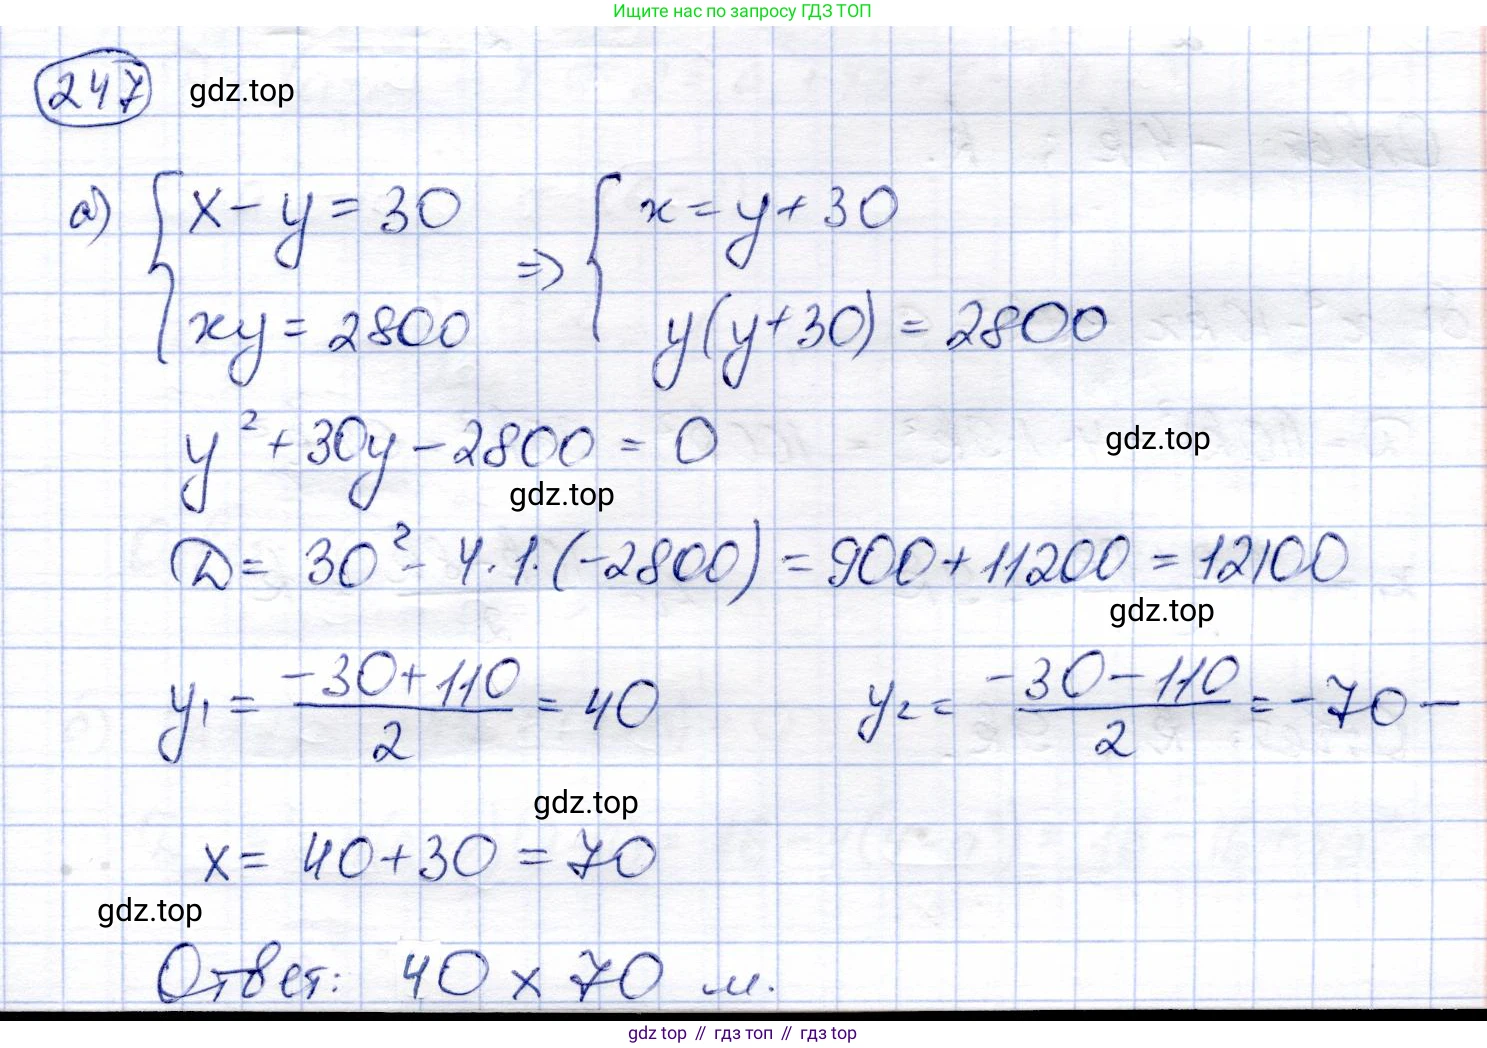 Ищите нас по запросу ГДЗ ТОП
247 gdz.top
а) { x - y = 30 => { x = y + 30
xy = 2800 y(y+30) = 2800
y² + 30y - 2800 = 0 gdz.top
gdz.top
D = 30² - 4·1·(-2800) = 900 + 11200 = 12100
gdz.top
y₁ = (-30+110)/2 = 40 y₂ = (-30-110)/2 = -70 -
gdz.top
x = 40 + 30 = 70
gdz.top
Ответ: 40 x 70 м.
gdz top // гдз топ // гдз top